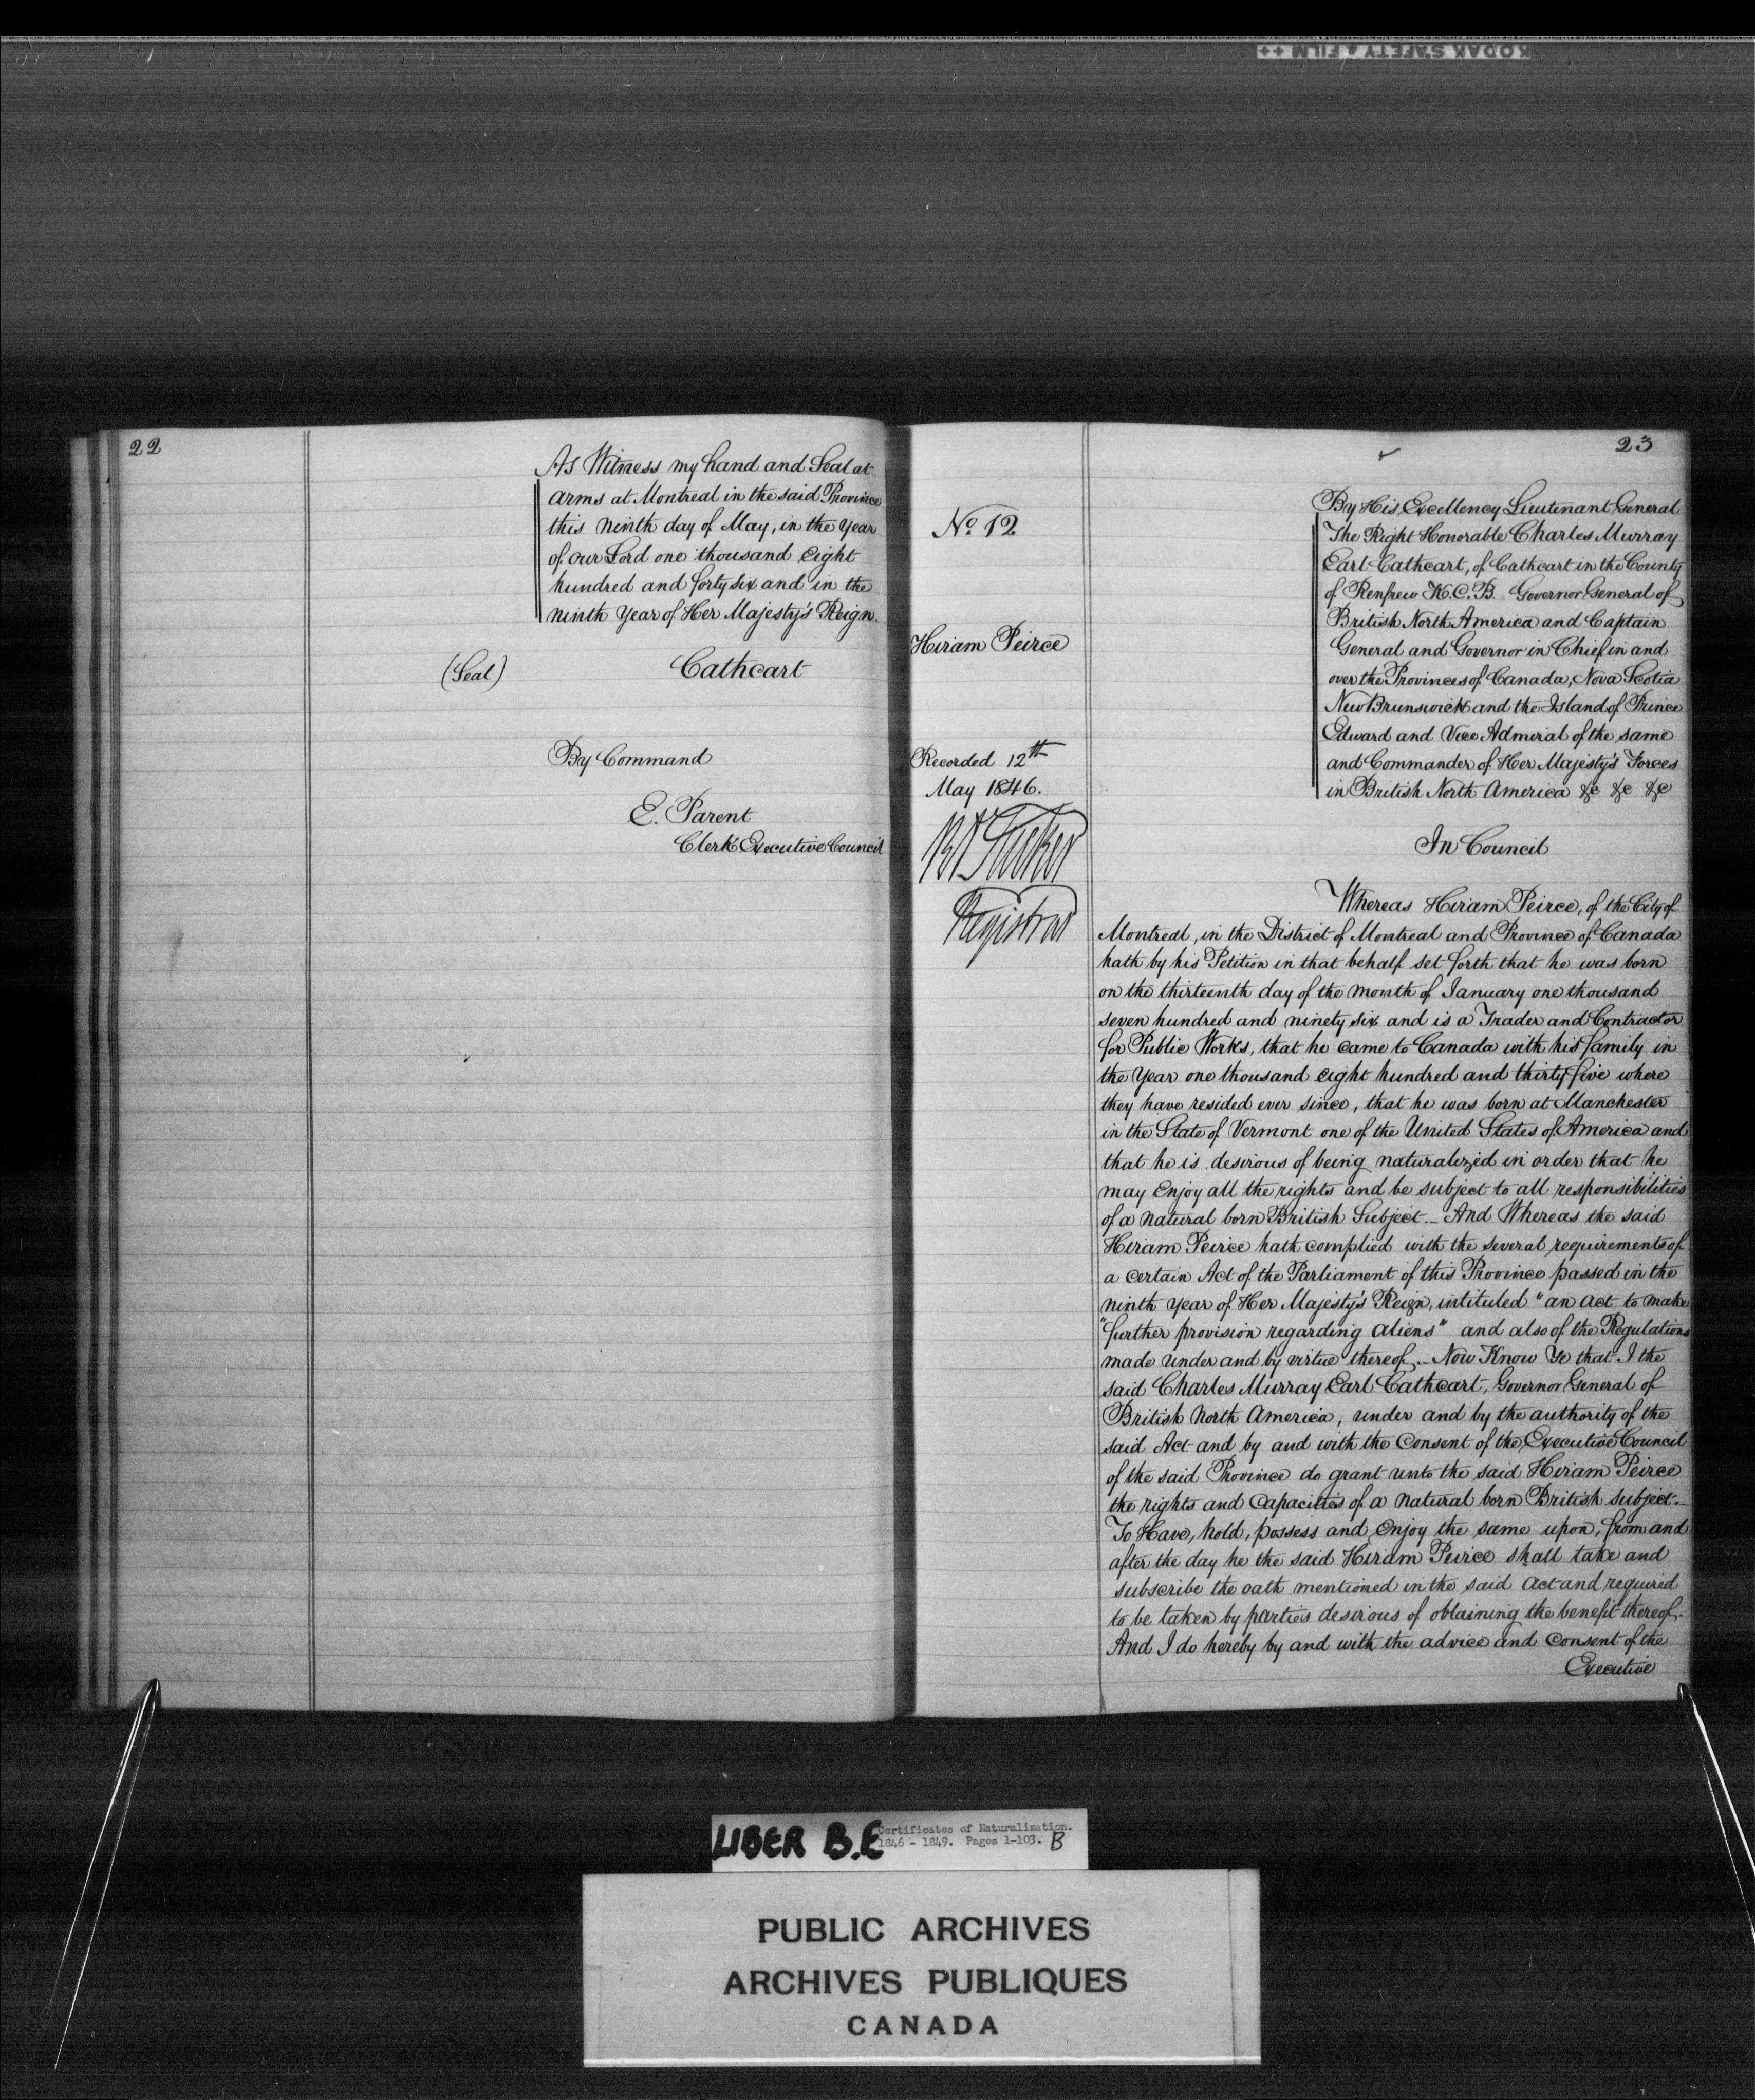 KODAK SAFETY A FILM ++
22
As Witness my hand and Seal at
arms at Montreal in the said Province
this ninth day of May, in the Year
of our Lord one thousand Eight
hundred and forty six and in the
ninth Year of Her Majesty's Reign.
(Seal) Cathcart
By Command
E. Parent
Clerk Executive Council
23
No. 12
Hiram Peirce
Recorded 12th
May 1846.
Registrar
By His Excellency Lieutenant General
The Right Honorable Charles Murray
Earl Cathcart, of Cathcart in the County
of Renfrew K.C.B. Governor General of
British North America and Captain
General and Governor in Chief in and
over the Provinces of Canada, Nova Scotia
New Brunswick and the Island of Prince
Edward and Vice Admiral of the same
and Commander of Her Majesty's Forces
in British North America &c &c &c
In Council
Whereas Hiram Peirce, of the City of
Montreal, in the District of Montreal and Province of Canada
hath by his Petition in that behalf set forth that he was born
on the thirteenth day of the month of January one thousand
seven hundred and ninety six and is a Trader and Contractor
for Public Works, that he came to Canada with his family in
the Year one thousand eight hundred and thirty five where
they have resided ever since, that he was born at Manchester
in the State of Vermont one of the United States of America and
that he is desirous of being naturalized in order that he
may Enjoy all the rights and be subject to all responsibilities
of a natural born British Subject._ And Whereas the said
Hiram Peirce hath complied with the several requirements of
a certain Act of the Parliament of this Province passed in the
ninth year of Her Majesty's Reign, intituled "an act to make
"further provision regarding aliens" and also of the Regulations
made under and by virtue thereof._ Now Know Ye that I the
said Charles Murray Earl Cathcart, Governor General of
British North America, under and by the authority of the
said Act and by and with the Consent of the Executive Council
of the said Province do grant unto the said Hiram Peirce
the rights and Capacities of a natural born British subject._
To Have, hold, possess and Enjoy the same upon, from and
after the day he the said Hiram Peirce shall take and
subscribe the oath mentioned in the said Act and required
to be taken by parties desirous of obtaining the benefit thereof.
And I do hereby by and with the advice and Consent of the
Executive
LIBER B.E
Certificates of Naturalization.
1846 - 1849. Pages 1-103. B
PUBLIC ARCHIVES
ARCHIVES PUBLIQUES
CANADA